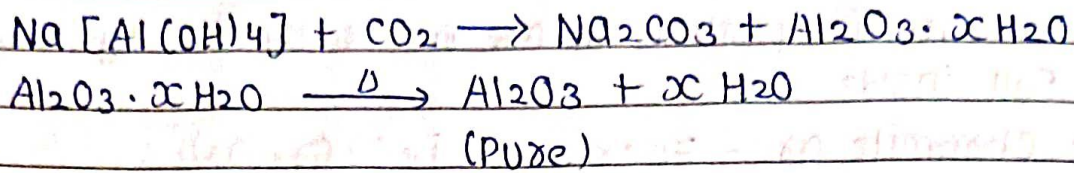 Na [Al(OH)4] + CO2 ⟶ Na2CO3 + Al2O3 · xH2O
Al2O3 · xH2O —Δ→ Al2O3 + xH2O
(Pure)